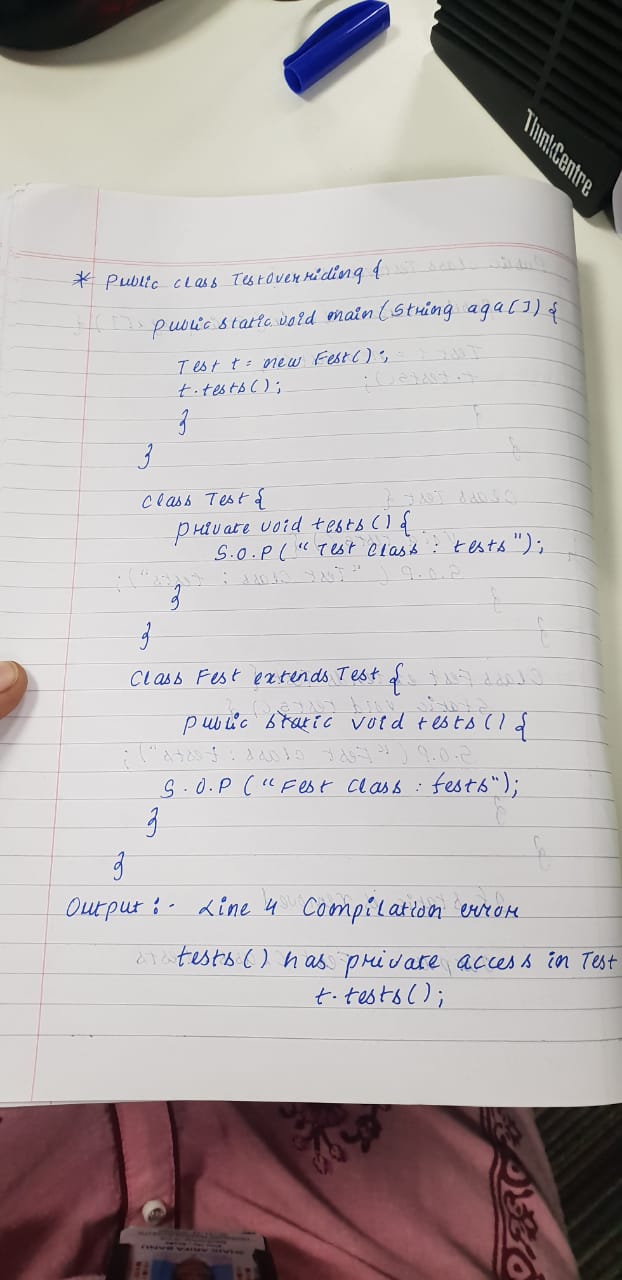 ThinkCentre
* Public class TestOverriding {
public static void main(String aga[]) {
Test t = new Fest();
t.tests();
}
}
class Test {
private void tests() {
S.O.P("Test class : tests");
}
}
Class Fest extends Test {
public static void tests() {
S.O.P ("Fest Class : tests");
}
}
Output :- Line 4 Compilation error
tests() has private access in Test
t.tests();